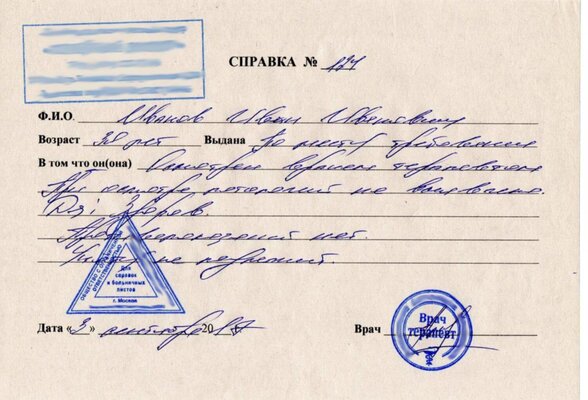 СПРАВКА № 124
Ф.И.О. Иванов Иван Иванович
Возраст 38 лет Выдана По месту требования
В том что он(она) Осмотрен врачом терапевтом
При осмотре патологий не выявлено.
Ds: Здоров.
Противопоказаний нет.
не
ОБЩЕСТВО С ОГРАНИЧЕННОЙ ОТВЕТСТВЕННОСТЬЮ
Для
справок
и больничных
листов
г. Москва
Дата «3» октября 2017 Врач
Врач
терапевт